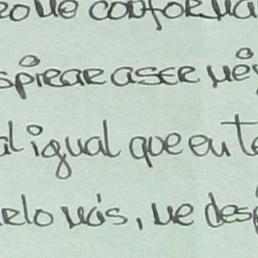 que conforma
aspirar a ser mé
al igual que en te
elo más, me desp